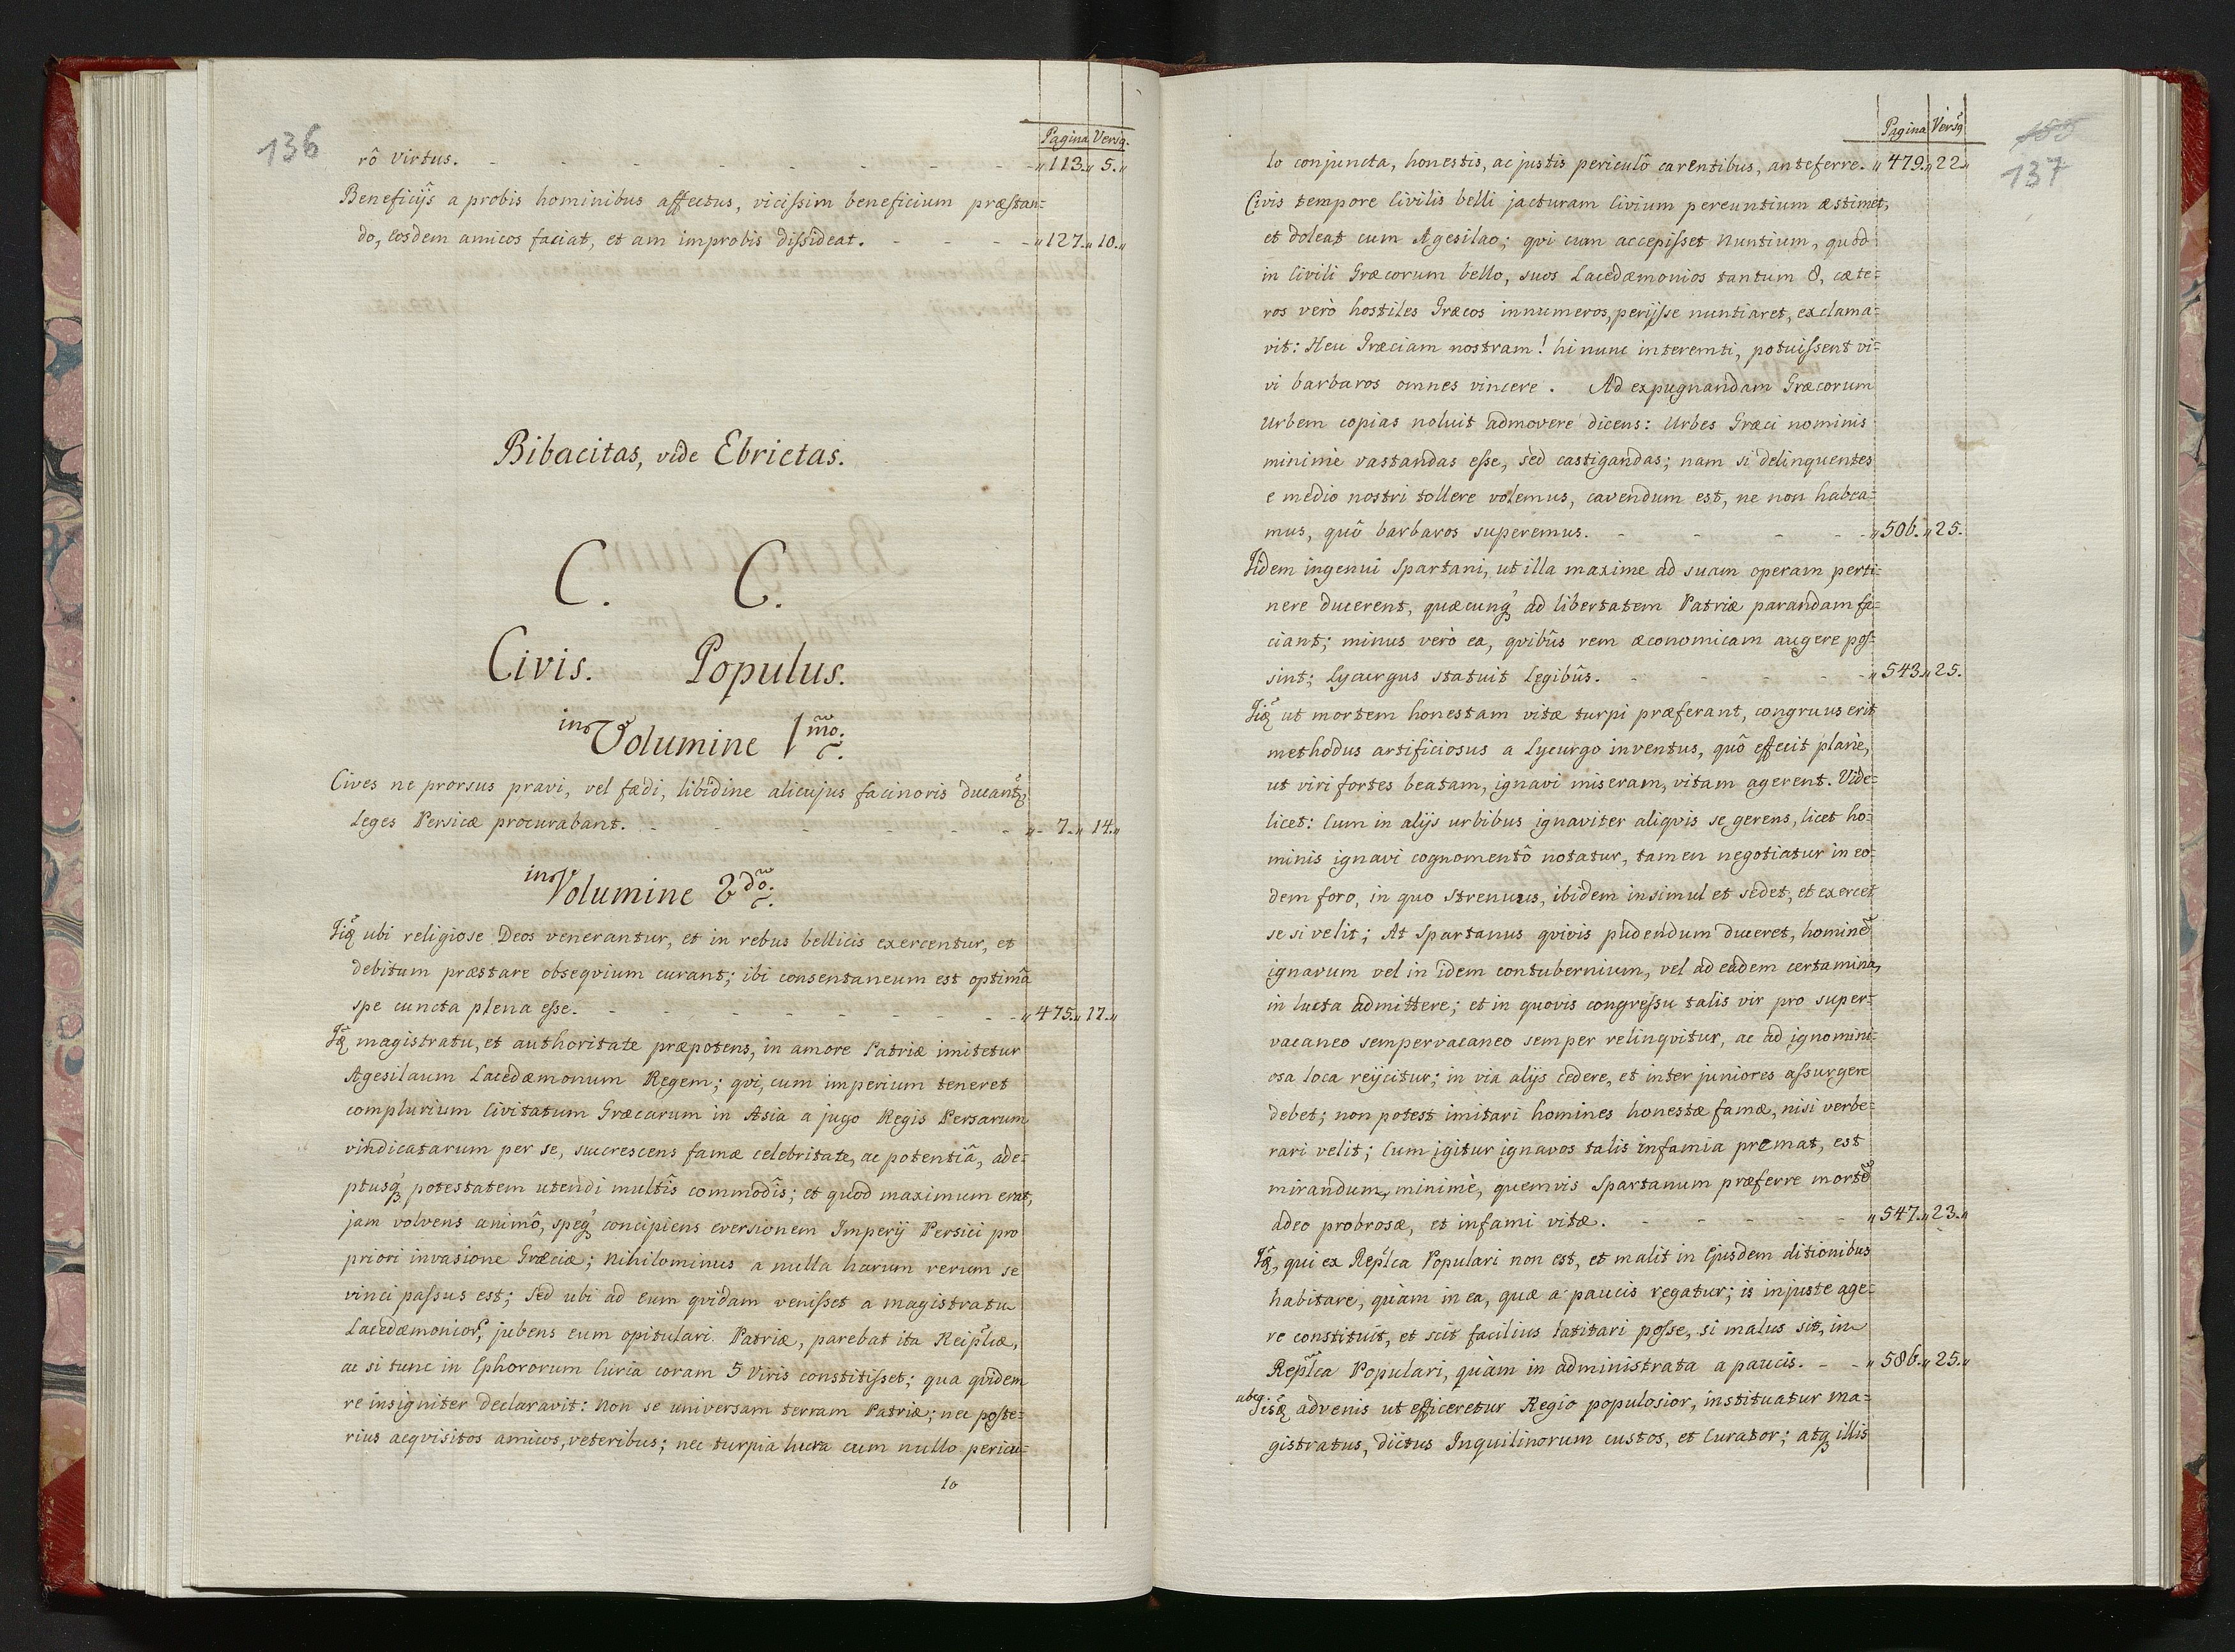 136
Pagina Versq.
rô virtus. - - - - - - - - „113.„ 5.„
Beneficijs a probis hominibus affectus, vicissim beneficium præstan=
do, Eosdem amicos faciat, et am improbis dissideat. - - - - „127.„ 10.„
Bibacitas, vide Ebrietas.
C. C.
Civis. Populus.
in Volumine 1mo.
Cives ne prorsus pravi, vel fædi, libidine alicujus facinoris ducantq
Leges Persicæ procurabant. - - - - - - „- 7.„ 14.„
in Volumine 2do.
Iiq ubi religiose Deos venerantur, et in rebus bellicis exercentur, et
debitum præstare obseqvium curant; ibi consentaneum est optimâ
spe cuncta plena esse. - - - - - - - „475.„ 17.„
Iq magistratu, et authoritate præpotens, in amore Patriæ imitetur
Agesilaum Lacedæmonum Regem; qvi, cum imperium teneret
complurium Civitatum Græcarum in Asia a jugo Regis Persarum
vindicatarum per se, succrescens famæ celebritate, ac potentiâ, ade=
ptusq potestatem utendi multîs commodîs; et quod maximum erat,
jam volvens animô, speq concipiens eversionem Imperij Persici pro
priori invasione Græciæ; nihilominus a nulla harum rerum se
vinci passus est; Sed ubi ad eum qvidam venisset a magistratu
Lacedæmonior, jubens eum opitulari Patriæ, parebat ita Reiplcæ,
ac si tunc in Ephororum Curia coram 5 Viris constitisset; qua qvidem
re insigniter declaravit: Non se universam terram Patriæ; nec poste=
rius acqvisitos amicos, veteribus; nec turpia lucra cum nullo pericu=
lo
Pagina Versq
155
137
lo conjuncta, honestis, ac justis periculô carentibus, anteferre. „479.„22„
Civis tempore Civilis belli jacturam Civium pereuntium æstimet,
et doleat cum Agesilao; qvi cum accepisset Nuntium, quod
in Civili Græcorum bello, suos Lacedæmonios tantum 8, cæte=
ros verò hostiles Græcos innumeros, perijsse nuntiaret, exclama=
vit: Heu Græciam nostram! hi nunc interemti, potuissent vi=
vi barbaros omnes vincere. Ad expugnandam Græcorum
Urbem copias noluit admovere dicens: Urbes Græci nominis
minimè vastandas esse, sèd castigandas; nam si delinquentes
e medio nostri tollere volemus, cavendum est, ne non habea=
mus, quô barbaros superemus. - - - - „506.„25.
Iidem ingenui Spartani, ut illa maxime ad suam operam perti=
nere ducerent, quæcunq ad libertatem Patriæ parandam fa=
ciant; minus verò ea, qvibûs rem œconomicam augere pos=
sint; Lycurgus statuit Legibûs. - - - - „543„25.
Iiq ut mortem honestam vitæ turpi præferant, congruus erit
methodus artificiosus a Lycurgo inventus, quô effecit planè,
ut viri fortes beatam, ignavi miseram, vitam agerent. Vide=
licet: Cum in alijs urbibus ignaviter aliqvis se gerens, licet ho=
minis ignavi cognomentô notatur, tamen negotiatur in eo=
dem foro, in quo strenuus, ibidem insimul et sedet, et exercet
se si velit; At Spartanus qvivis pudendum duceret, hominẽ
ignavum vel in idem contubernium, vel ad eadem certamina,
in lucta admittere; et in quovis congressu talis vir pro super=
vacaneo sempervacaneo semper relinqvitur, ac ad ignomini=
osa loca reijcitur; in via alijs cedere, et inter juniores assurgere
debet; non potest imitari homines honestæ famæ, nisi verbe=
rari velit; Cum igitur ignavos talis infamia premat, est
mirandum, minimè, quemvis Spartanum præferre mortẽ
adeo probrosæ, et infami vitæ. - - - - „547.„23.„
Iq, qui ex Replca Populari non est, et malit in Ejusdem ditionibus
habitare, quàm in ea, quæ a paucis regatur; is injuste age=
re constituit, et scit facilius latitari posse, si malus sit, in
Replca Populari, quàm in administrata a paucis. - - „586.„25.„
Iisq advenis ut efficeretur Regio populosior, instituatur ma=
gistratus, dictus Inquilinorum custos, et Curator; atq illis